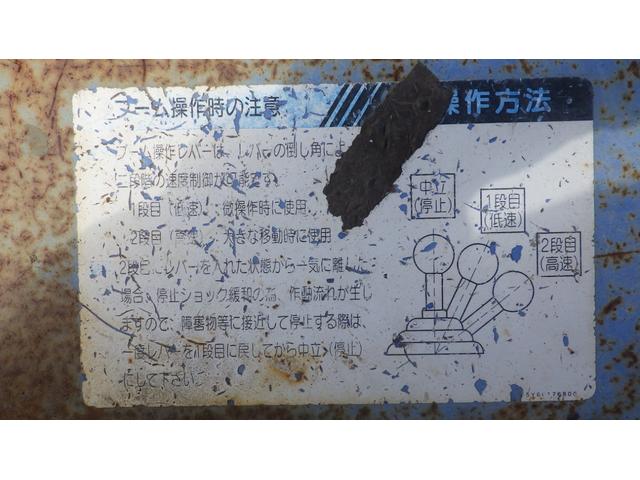 ブーム操作時の注意
操作方法
ブーム操作レバーは、レバーの倒し角によ
二段階の速度制御が可能です。
1段目（低速）：微操作時に使用
2段目（高速）：大きな移動時に使用
2段目にレバーを入れた状態から一気に離した
場合、停止ショック緩和の為、作動流れが生じ
ますので、障害物等に接近して停止する際は、
一度レバーを1段目に戻してから中立（停止）
にして下さい。
中立
（停止）
1段目
（低速）
2段目
（高速）